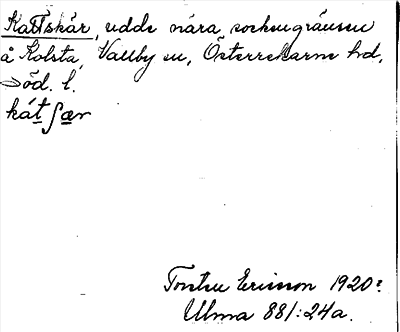 Kattskär, udde nära sockengränsen
å Kolsta, Vallby sn, Österrekarne hd,
Söd. l.
kát ʃær
Torsten Ericsson 1920?
Ulma 881:24a.